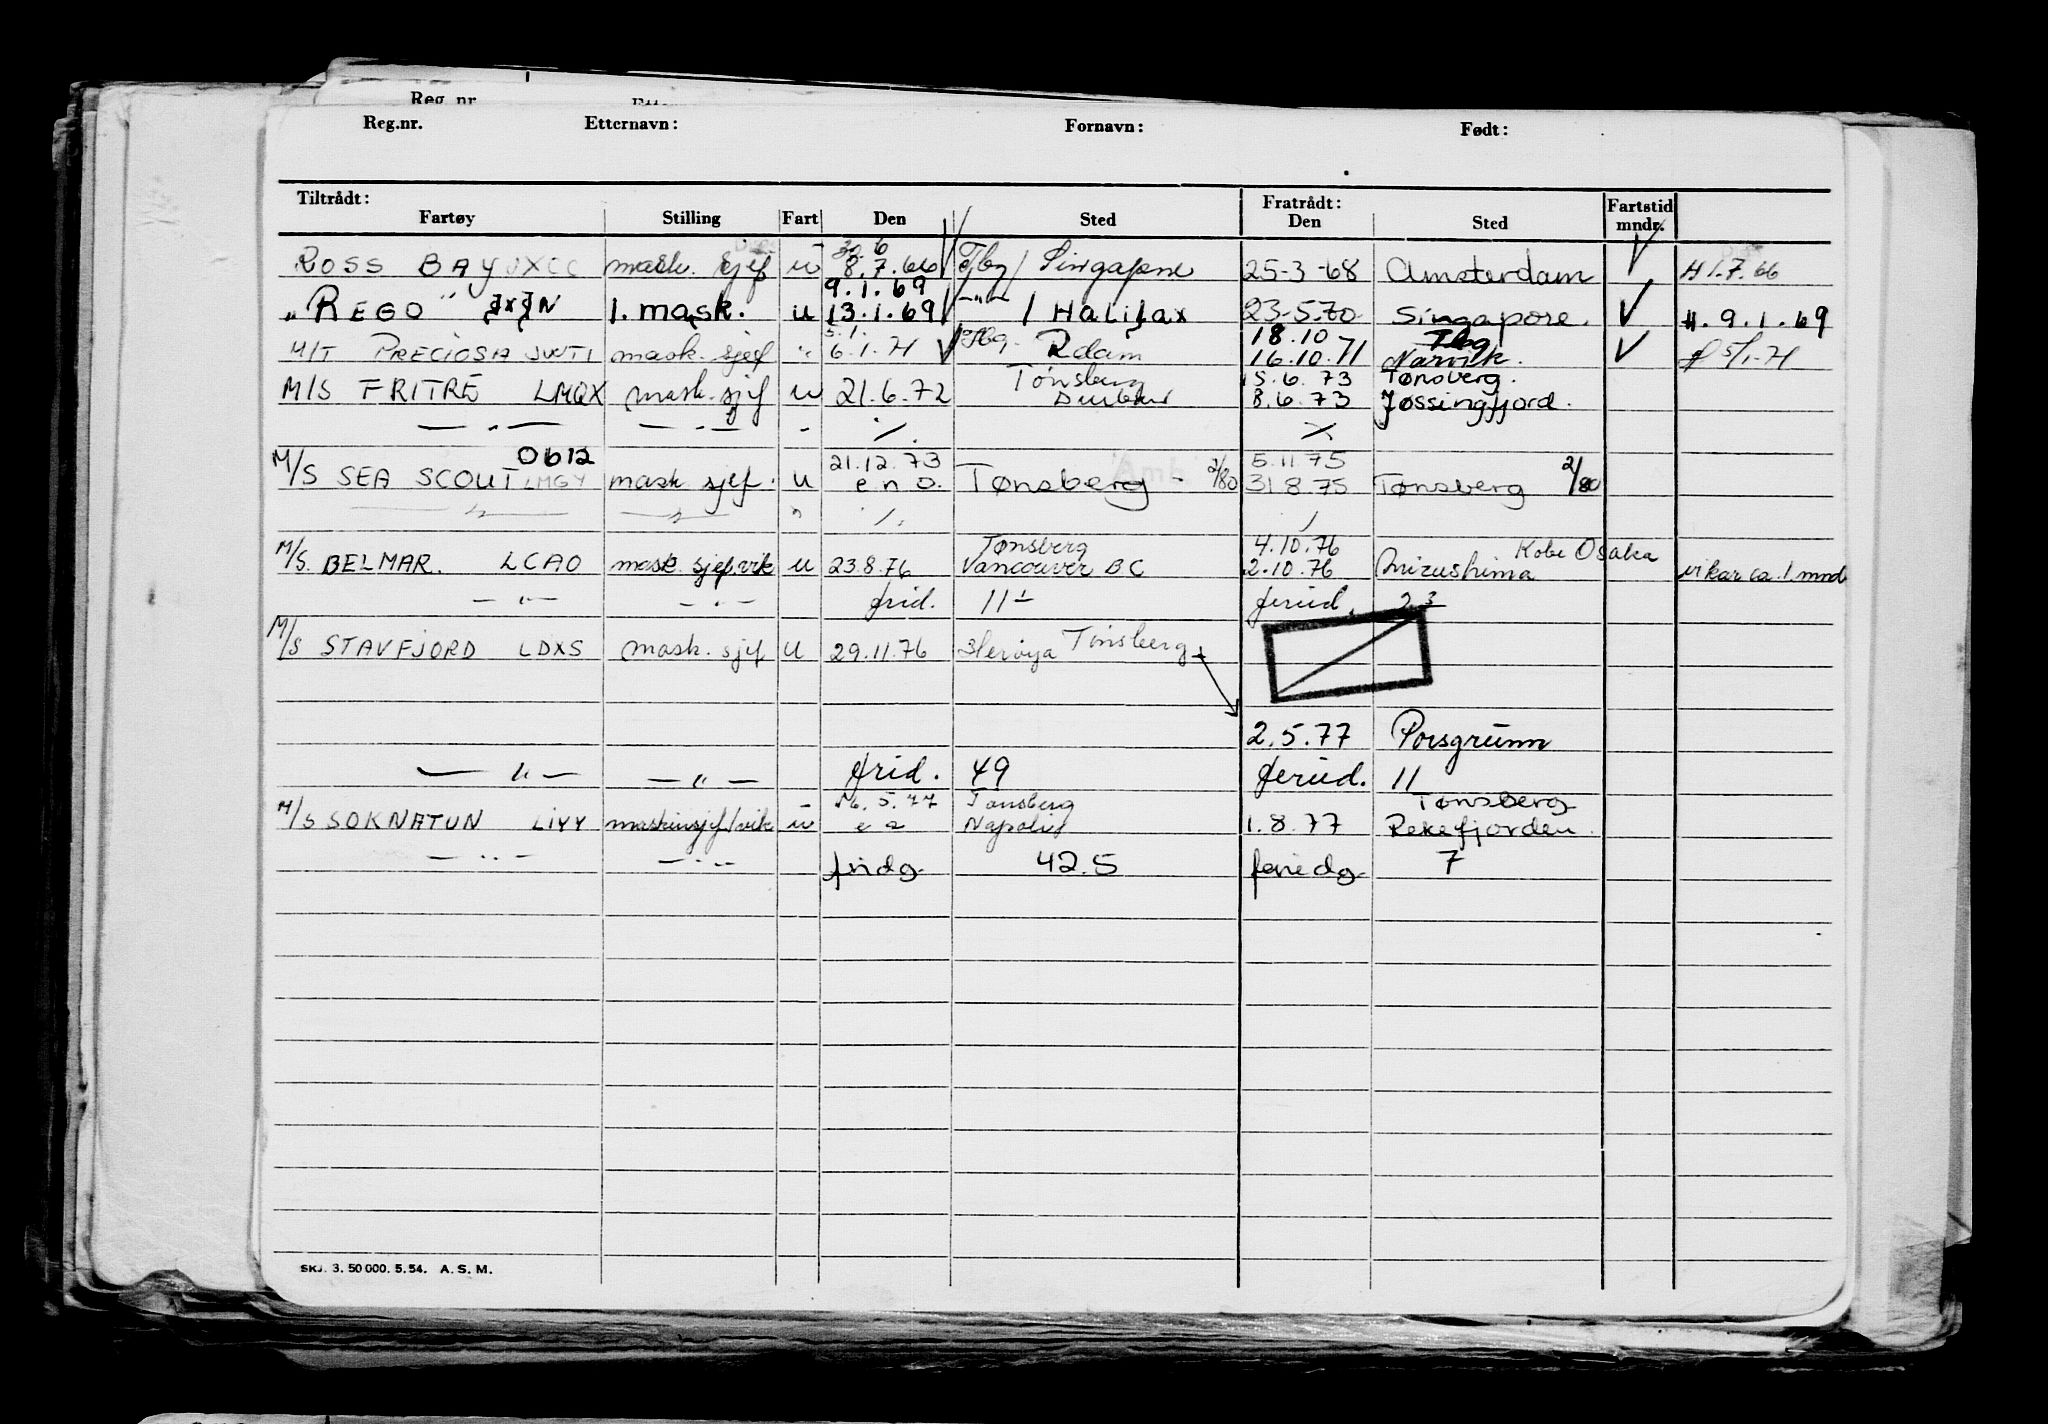 Reg. nr.
Reg.nr. Etternavn: Fornavn: Født:
Tiltrådt: Fratrådt: Fartstid
Fartøy Stilling Fart Den Sted Den Sted mndr.
30.6
ROSS BAY JXCC mask. sjef u 8.7.66 Tbg / Singapore 25-3-68 Amsterdam H 1.7.66
9.1.69
"REGO" 1. mask. u 13.1.69 -"- / Halifax 23.5.70 Singapore. H. 9.1.69
5.1. Tbg. 18.10 Tbg
M/T PRECIOSA mask. sjef " 6.1.71 Rdam 16.10.71 Narvik. 5/1-71
Tønsberg 15.6.73 Tønsberg.
M/S FRITRE LMQX mask. sjef u 21.6.72 Durban 8.6.73 Jøssingfjord.
— " — — " — - ./. ./.
0612 21.12.73 5.11.75
M/S SEA SCOUT LMGY mask sjef. u e n o. Tønsberg - 2/80 31 8.75 Tønsberg 2/80
— " — — " — " ./. /
Tønsberg 4.10.76 Kobe Osaka
M/S. BELMAR. LCAO mask. sjef.vik u 23.8.76 Vancouver BC 2.10.76 Mizushima vikar ca. 1 mnd
— " — — " — frid. 11 feried. 2.3
M/S STAVFJORD LDXS mask. sjef u 29.11.76 Herøya Tønsberg
2.5.77 Porsgrunn
— " — — " — frid. 49 feried. 11
5.77 Tønsberg Tønsberg
M/S SOKNATUN LIYY maskinsjef/vik u Napoli 1.8.77 Rekefjorden.
— " — — " — fridg. 42.5 feriedg. 7
SKJ. 3. 50 000. 5. 54. A. S. M.